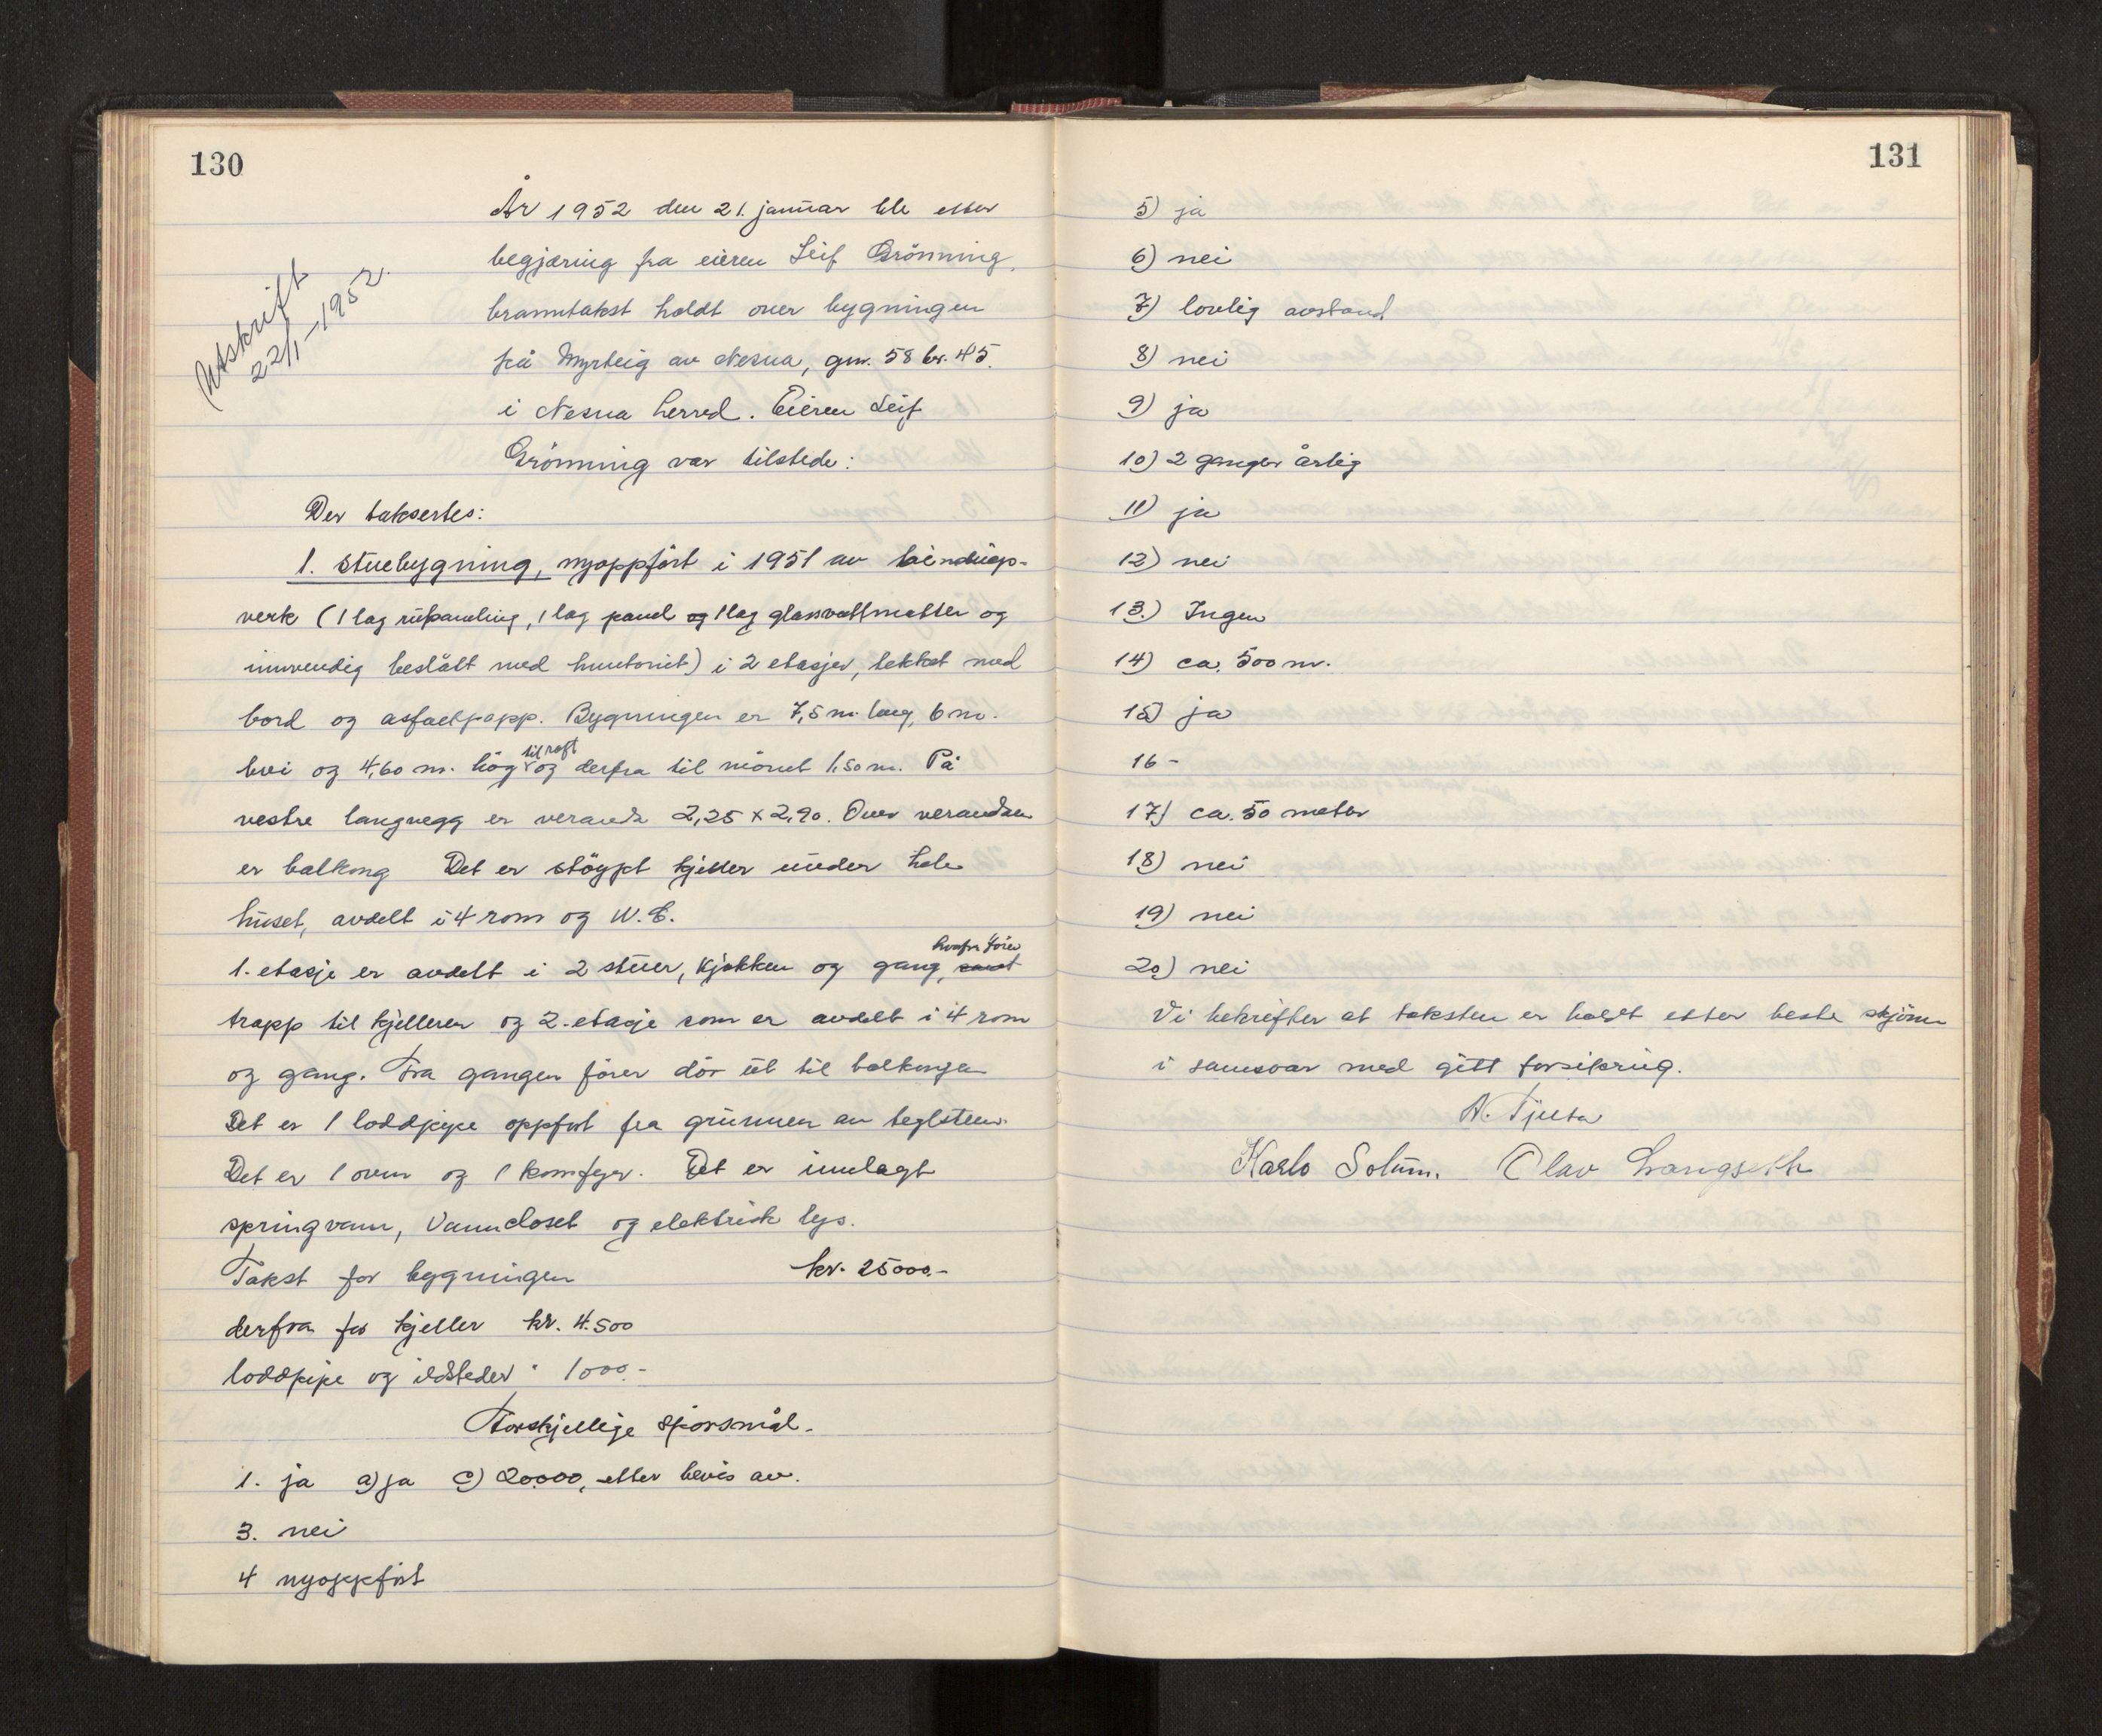 130
År 1952 den 21. januar ble etter
begjæring fra eieren Leif Grönning,
branntakst holdt over bygningen
på Myrteig av Nesna, gnr. 58 br. 45.
i Nesna herred. Eieren Leif
Grönning var tilstede:
Utskrift
22/1-1952.
Der taksertes:
1. Stuebygning, nyoppfört i 1951 av bindings-
verk (1 lag rupanling, 1 lag panel og 1 lag glassvattmatter og
innvendig beslått med huntonit) i 2 etasjer, tekket med
bord og asfaltpapp. Bygningen er 7,5 m. lang, 6 m.
brei og 4,60 m. hög til raft og derfra til mönet 1,50 m. På
vestre langvegg er veranda 2,25 x 2,90. Over verandaen
er balkong Det er stöypt kjeller under hele
huset, avdelt i 4 rom og W.C.
1. etasje er avdelt i 2 stuer, kjøkken og gang, samt hvorfra förer
trapp til kjelleren og 2. etasje som er avdelt i 4 rom
og gang. Fra gangen förer dör ut til balkongen
Det er 1 loddpipe oppfört fra grunnen av teglsten.
Det er 1 ovn og 1 komfyr. Det er innlagt
springvann, vanncloset og elektrisk lys.
Takst for bygningen kr. 25000,-
derfra for kjeller kr. 4.500
loddpipe og ildsteder " 1000.-
Forskjellige spörsmål.
1. ja a) ja c) 20.000, etter bevis av.
3. nei
4 nyoppfört
131
5) ja
6) nei
7) lovlig avstand
8) nei
9) ja
10) 2 ganger årlig
11) ja
12) nei
13.) Ingen
14) ca. 500 m.
15) ja
16 -
17) ca. 50 meter
18) nei
19) nei
20) nei
Vi bekrefter at taksten er holdt etter beste skjönn
i samsvar med gitt forsikring.
A. Tjelta
Karlo Solum. Olav Langseth